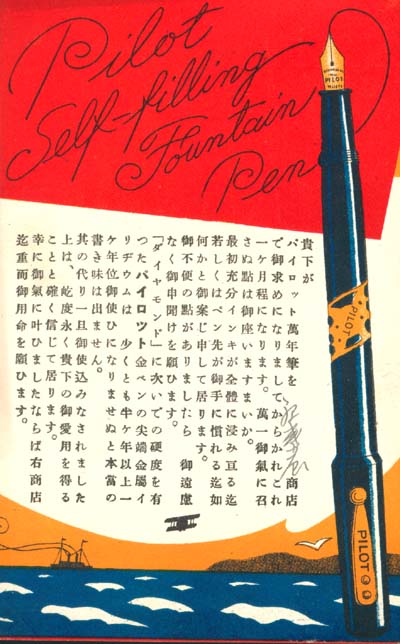 Pilot
Self-filling
Fountain
Pen
PILOT
貴下が
パイロット萬年筆を　　　商店
で御求めになりましてからかれこれ
一ケ月程になります。萬一御氣に召
さぬ點は御座いますまいか。
最初充分インキが全體に浸み亙る迄
若しくはペン先が御手に慣れる迄如
何かと御案じ申して居ります。
御不便の點がありましたら　御遠慮
なく御申聞けを願ひます。
「ダイヤモンド」に次いでの硬度を有
つたパイロット金ペンの尖端金屬イ
リヂウムは、少くとも半ケ年以上一
ケ年位御使ひになりませぬと本當の
書き味は出ません。
其の代り一旦御使込みなされました
上は、屹度永く貴下の御愛用を得る
ことと確く信じて居ります。
幸に御氣に叶ひましたならば右商店
迄重而御用命を願ひます。
PILOT
PILOT